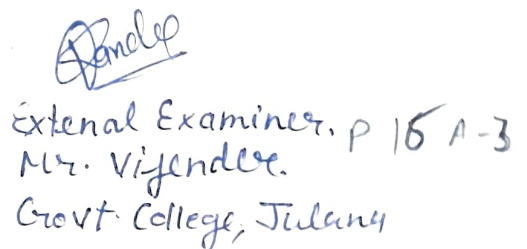 Extenal Examiner. P 15 A-3
Mr. Vijender.
Govt. College, Julana